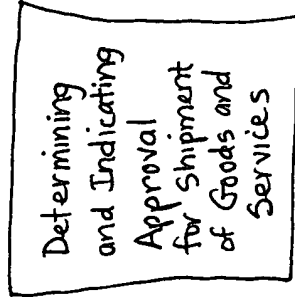 Determining
and Indicating
Approval
for Shipment
of Goods and
Services